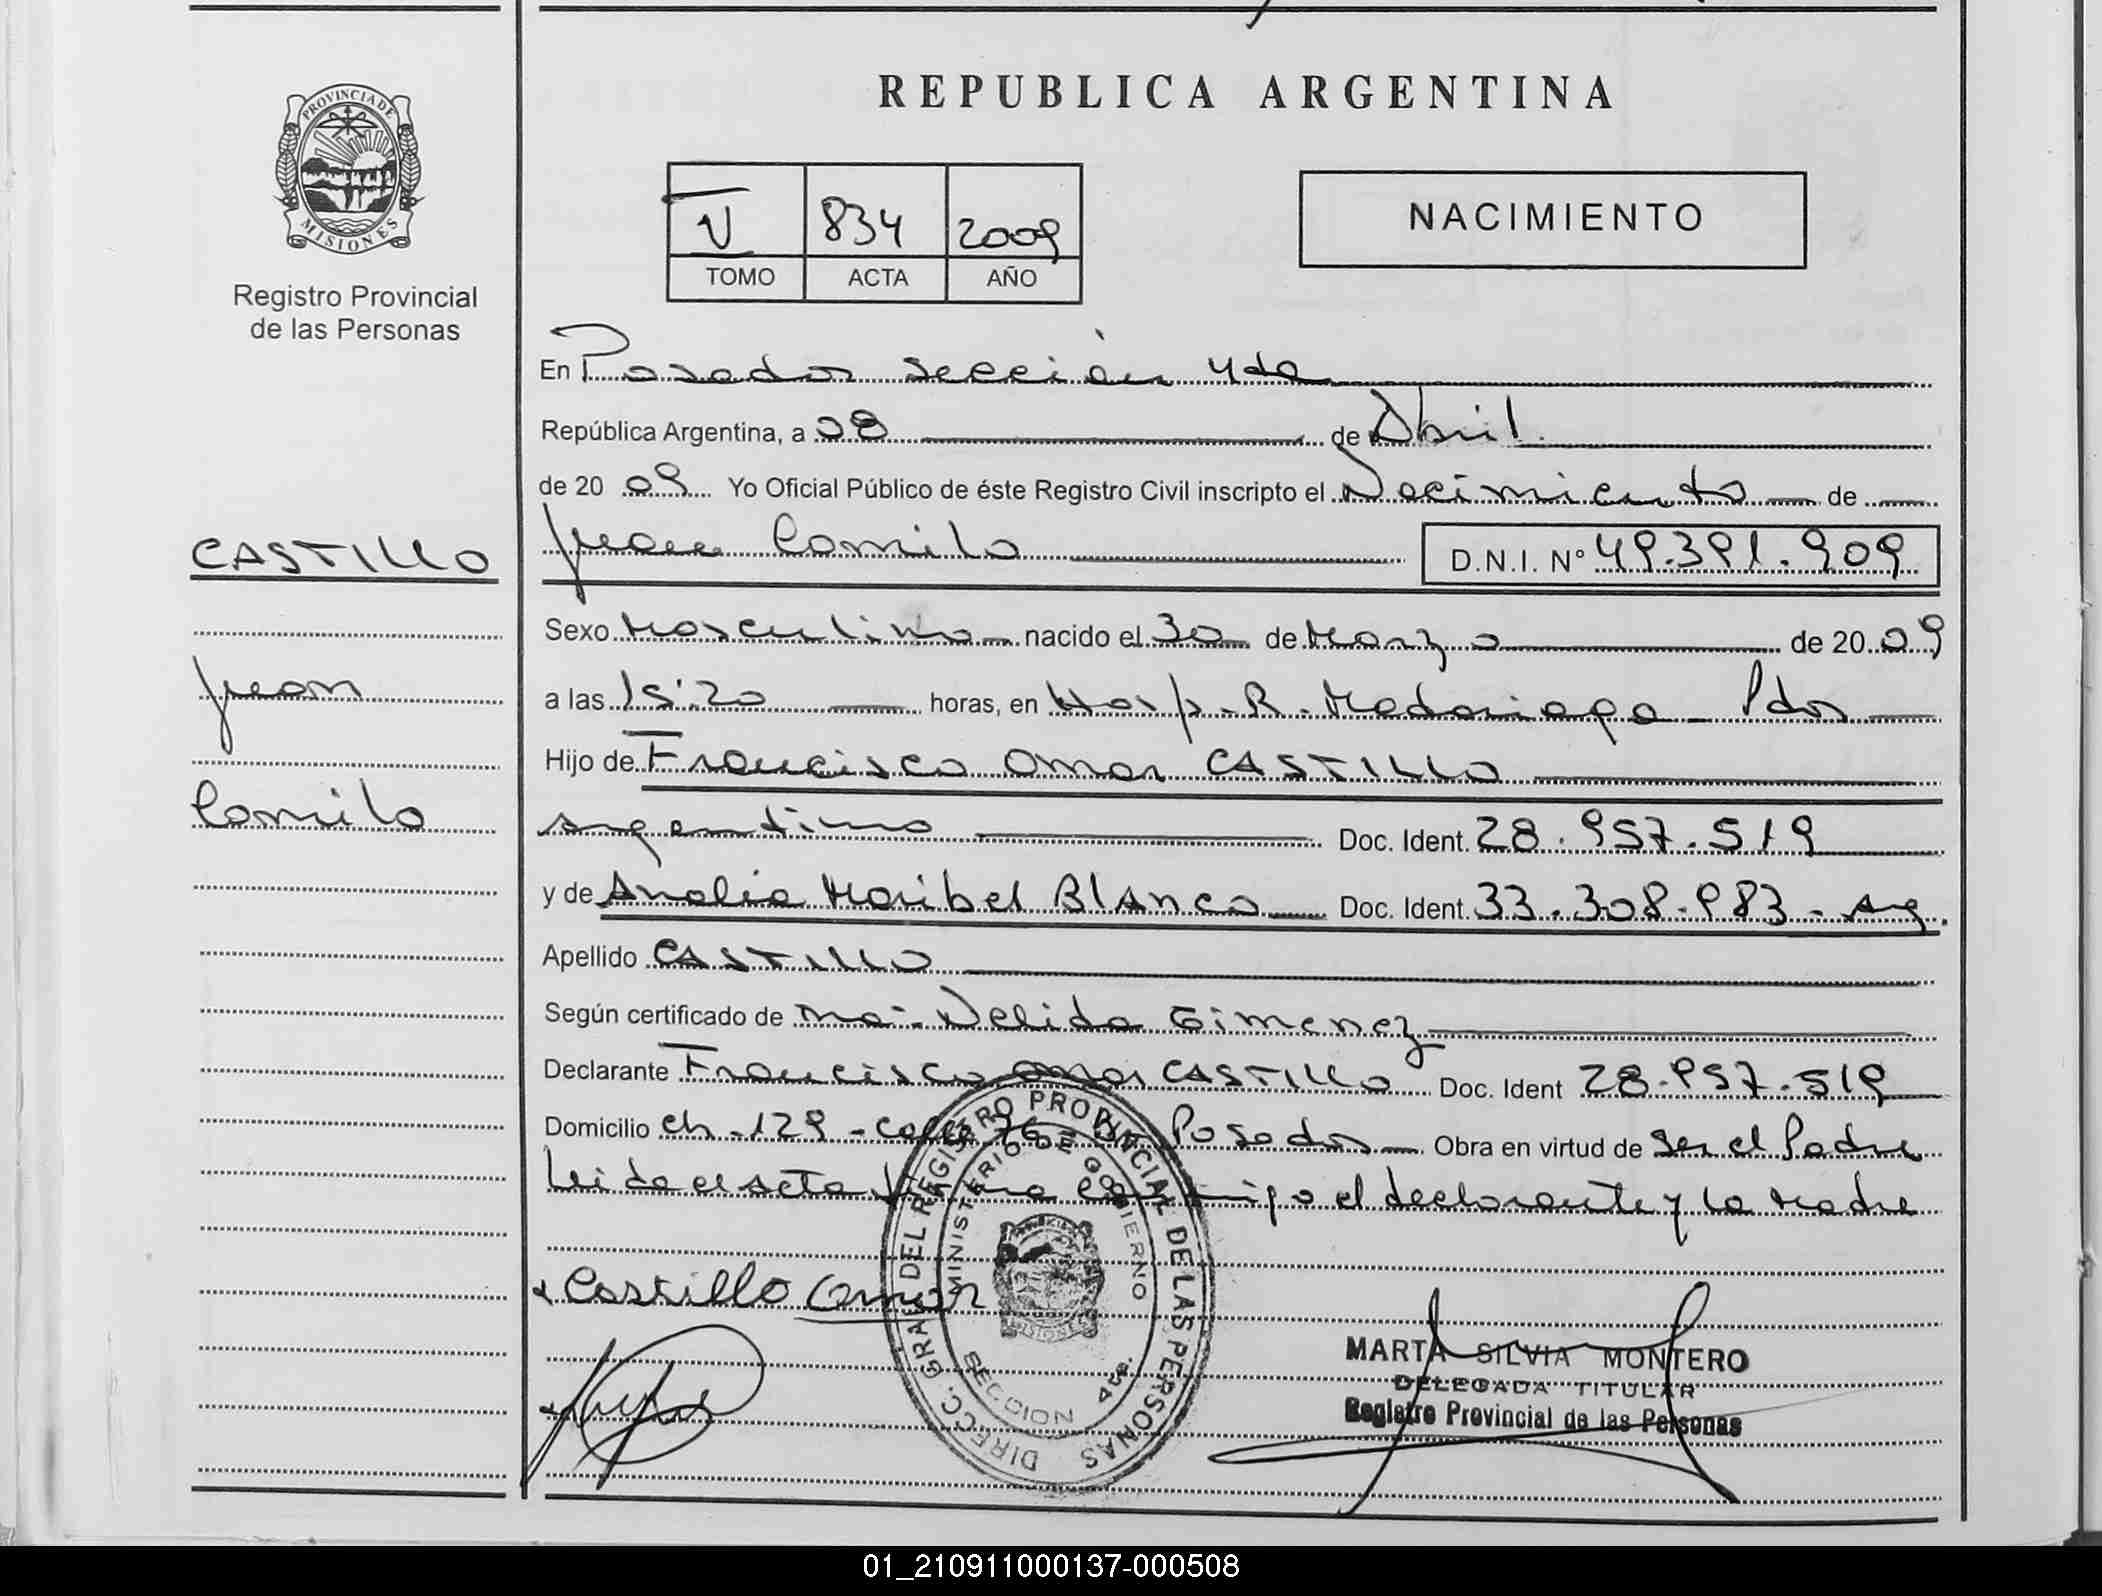 REPUBLICA ARGENTINA
PROVINCIA DE
MISIONES
Registro Provincial
de las Personas
V 834 2009
TOMO ACTA AÑO
NACIMIENTO
En Posadas sección 4ta
República Argentina, a 08 de Abril
de 2009 Yo Oficial Público de éste Registro Civil inscripto el Nacimiento de
Juan Camilo D.N.I. Nº 49.391.909
CASTILLO
Juan
Camilo
Sexo Masculino nacido el 30 de Marzo de 2009
a las 15:20 horas, en Hosp. R. Madariaga - Pdas
Hijo de Francisco Omar CASTILLO
argentino Doc. Ident. 28.957.519
y de Analia Maribel BlAnco Doc. Ident. 33.308.983 - Arg.
Apellido CASTILLO
Según certificado de Nelida Gimenez
Declarante Francisco Omar CASTILLO Doc. Ident 28.957.519
Domicilio ch - 129 - calle Posadas Obra en virtud de ser el Padre
Leida el acta firma conmigo el declarante y la Madre
Castillo Omar
DIRECC. GRAL DEL REGISTRO PROVINCIAL DE LAS PERSONAS
MINISTERIO DE GOBIERNO
SECCION 4ta.
MISIONES
MARTA SILVIA MONTERO
DELEGADA TITULAR
Registro Provincial de las Personas
01_210911000137-000508